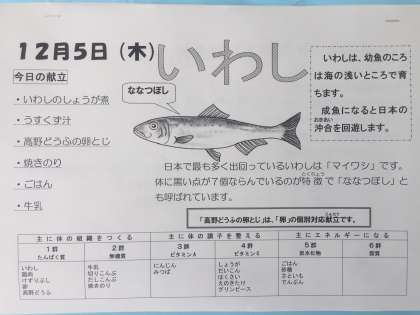 12月5日（木）
いわし
今日の献立
・いわしのしょうが煮
・うすくず汁
・高野どうふの卵とじ
・焼きのり
・ごはん
・牛乳
ななつぼし
いわしは、幼魚のころ
は海の浅いところで育
ちます。
成魚になると日本の
おきあい
沖合を回遊します。
日本で最も多く出回っているいわしは「マイワシ」です。
とくちょう
体に黒い点が７個ならんでいるのが特徴で「ななつぼし」と
も呼ばれています。
「高野どうふの卵とじ」は、「卵」の個別対応献立です。
主に体の組織をつくる 主に体の調子を整える 主にエネルギーになる
1群 2群 3群 4群 5群 6群
たんぱく質 無機質 ビタミンA ビタミンC 炭水化物 脂質
いわし 牛乳 にんじん しょうが ごはん
鶏肉 切りこんぶ みつば だいこん 砂糖
けずりぶし だしこんぶ はくさい さといも
卵 焼きのり えのきたけ でんぷん
高野どうふ グリンピース